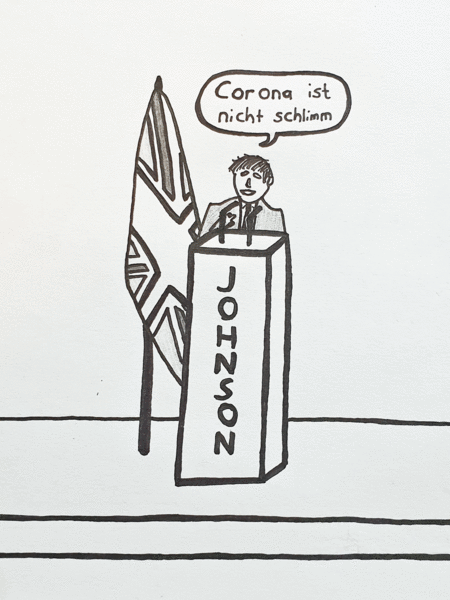 Corona ist
nicht schlimm
JOHNSON